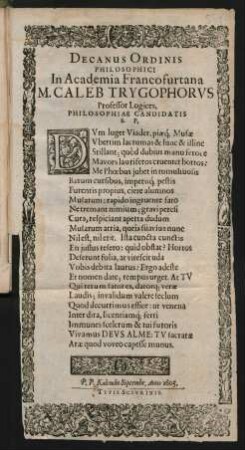 DECANUS ORDINIS
PHILOSOPHICI
In Academia Francofurtana
M. CALEB TRYGOPHORVS
Professor Logices,
PHILOSOPHIAE CANDIDATIS
S. P.
DVm luget Viader, piæq; Musæ
Vbertim lacrumas & hinc & illinc
Stillant, quòd dubius manu feroce
Mavors lauriferos cruentet hortos:
Me Phœbus jubet in tumultuosis
Rerum cursibus, impetuq; pestis
Furentis propius, ciere alumnos
Musarum: rapido ingruente fato
Ne tremant nimium, gravi percti
Cura, respiciant aperta dudum
Musarum atria, queis suavius nunc
Nil est, nil est. Ista cuncta cunctis
En jussus refero: quid obstat? Hortos
Deserunt folia, at virescit uda
Vobis debita laurus: Ergo adeste
Et nomen date, tempus urget. At TV
Qui rerum sator es, dator q; veræ
Laudis; invalidum valere seclum
Quod decurrimus effice: ut venena
Inter dira, licentiamq; ferri
Immunes scelerum & tui futuris
Vivamus DEVS ALME: TV sacratæ
Aræ quod voveo capesse munus.
P. P. Kalendis Septembr. Anno
TYPIS SCIVRINIS.